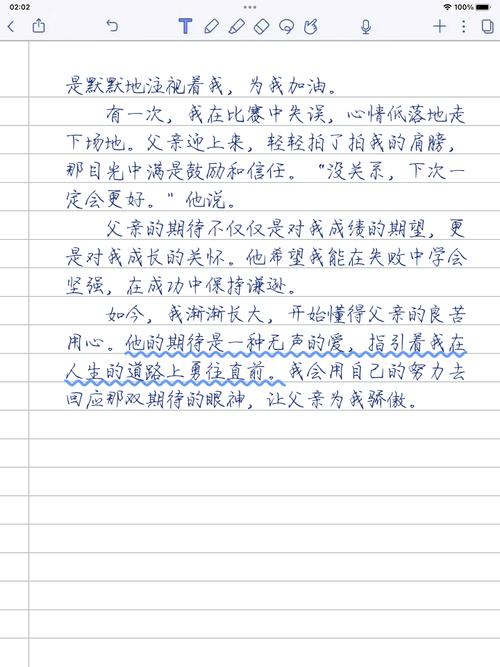 02:02
100%
T
是默默地注视着我，为我加油。
有一次，我在比赛中失误，心情低落地走
下场地。父亲迎上来，轻轻拍了拍我的肩膀，
那目光中满是鼓励和信任。“没关系，下次一
定会更好。”他说。
父亲的期待不仅仅是对我成绩的期望，更
是对我成长的关怀。他希望我能在失败中学会
坚强，在成功中保持谦逊。
如今，我渐渐长大，开始懂得父亲的良苦
用心。他的期待是一种无声的爱，指引着我在
人生的道路上勇往直前。我会用自己的努力去
回应那双期待的眼神，让父亲为我骄傲。